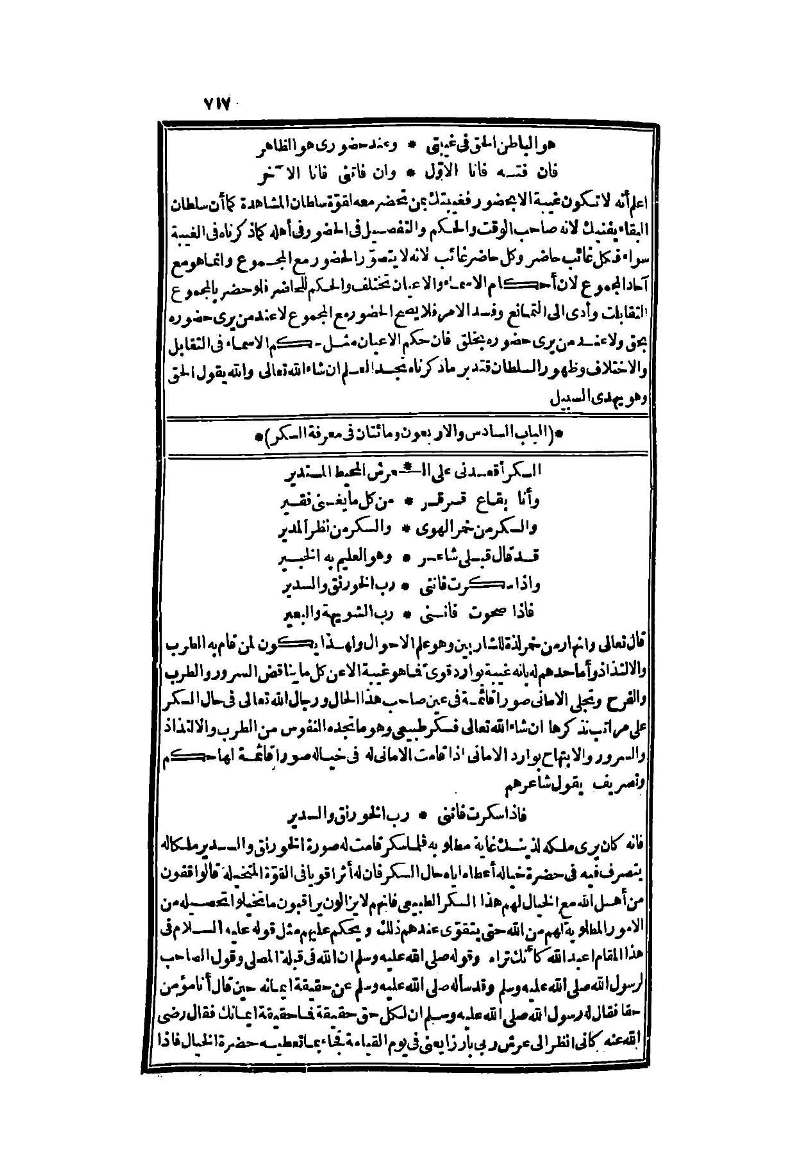 ٧١٧
هو الباطن الحق في غيبتي * وعند حضوري هو الظاهر
فان فتسه فانا الاوّل * وان فاتني فانا الآخر
اعلم أنه لا تكون غيبة الا بحضور فغيبتك بمن تحضر معه لقوّة سلطان المشاهدة كما أن سلطان
البقاء يفنيك لانه صاحب الوقت والحكم والتفصيل في الحضور في أهله كما ذكرناه في الغيبة
سواء فكل غائب حاضر وكل حاضر غائب لانه لا يتصوّر الحضور مع المجموع وانما هو مع
آحاد المجموع لان أحكام الاسماء والاعيان تختلف والحكم للحاضر فلو حضر بالمجموع
التقابلت وأدى الى التمانع وفسد الامر فلا يصح الحضور مع المجموع لا عند من يرى حضوره
بحق ولا عند من يرى حضوره بخلق فان حكم الاعيان مثل حكم الاسماء في التقابل
والاختلاف وظهور السلطان فتدبر ما ذكرناه تجد العلم ان شاء الله تعالى والله يقول الحق
وهو يهدى السبيل
*(الباب السادس والاربعون ومائتان في معرفة السكر)*
السكر أقعدنى على الـ * ـعرش المحيط المستدير
وأنا بقاع قرقر * من كل ما يغني فقير
والسكر من خمر الهوى * والسكر من نظر المدير
قد قال قبلي شاعر * وهو العليم به الخبير
واذا سكرت فانني * رب الخورنق والسدير
فاذا صحوت فانني * رب الشويهة والبعير
قال تعالى وانهار من خمر لذة للشاربين وهو علم الاحوال ولهذا يكون لمن قام به الطرب
والالتذاذ وأما حدهم له بانه غيبة بوارد قوى فما هو غيبة الا عن كل ما يناقض السرور والطرب
والفرح وتجلى الامانى صورا قائمة في عين صاحب هذا الحال ورجال الله تعالى في حال السكر
على مراتب نذكرها ان شاء الله تعالى فسكر طبيعي وهو ما تجده النفوس من الطرب والالتذاذ
والسرور والابتهاج بوارد الامانى اذا قامت الامانى له في خياله صورا قائمة لها حكم
وتصريف يقول شاعرهم
فاذا سكرت فاننى * رب الخورنق والسدير
فانه كان يرى ملكه لذينك غاية مطلوبه فلما سكر قامت له صورة الخورنق والسدير ملكا له
يتصرف فيه في حضرة خياله أعطاه اياه حال السكر فان له أثرا قويا في القوة المتخيلة فالواقفون
من أهل الله مع الخيال لهم هذا السكر الطبيعي فانهم لا يزالون يراقبون ما تخيلوا تحصيله من
الامور المطلوبة لهم من الله حتى يتقوى عندهم ذلك ويحكم عليهم مثل قوله عليه السلام في
هذا المقام اعبد الله كأنك تراه وقوله صلى الله عليه وسلم ان الله في قبلة المصلى وقول الصاحب
لرسول الله صلى الله عليه وسلم وقد سأله صلى الله عليه وسلم عن حقيقة ايمانه حين قال أنا مؤمن
حقا فقال له رسول الله صلى الله عليه وسلم ان لكل حق حقيقة فما حقيقة ايمانك فقال رضى
الله عنه كأنى انظر الى عرش ربى بارزا يعنى في يوم القيامة فجاء بما تعطيه حضرة الخيال فاذا